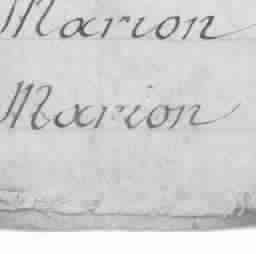 Marion
Marion